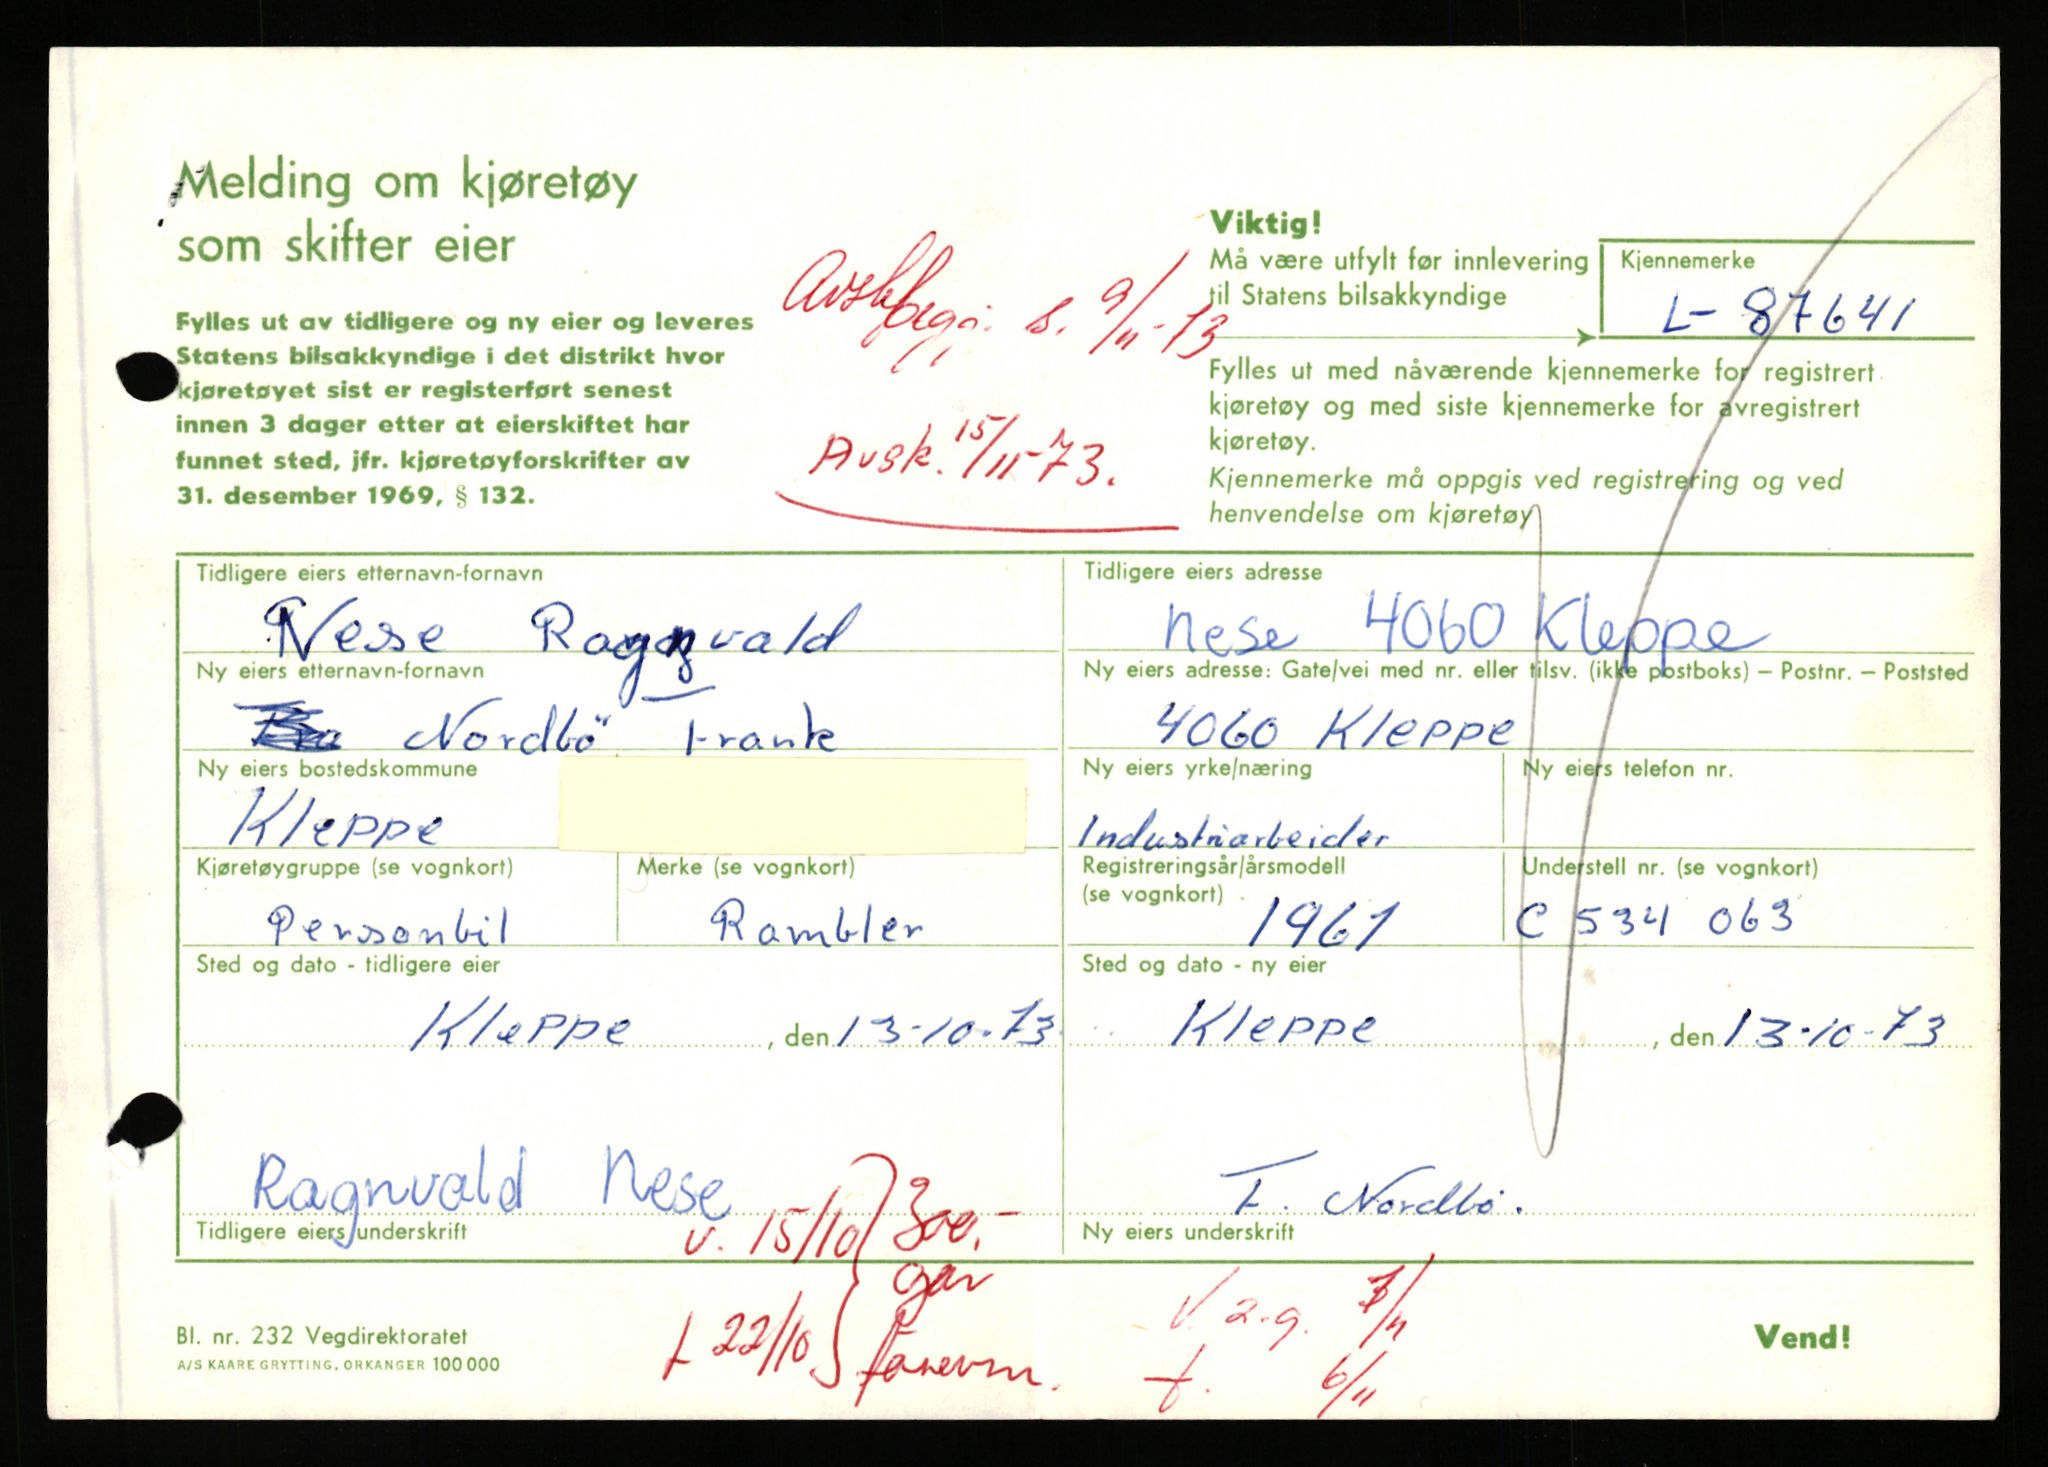 Melding om kjøretøy
som skifter eier
Fylles ut av tidligere og ny eier og leveres
Statens bilsakkyndige i det distrikt hvor
kjøretøyet sist er registerført senest
innen 3 dager etter at eierskiftet har
funnet sted, jfr. kjøretøyforskrifter av
31. desember 1969, § 132.
Avsk. 15/11-73.
s. 9/11-73
Viktig!
Må være utfylt før innlevering
til Statens bilsakkyndige
Kjennemerke
L- 87641
Fylles ut med nåværende kjennemerke for registrert
kjøretøy og med siste kjennemerke for avregistrert
kjøretøy.
Kjennemerke må oppgis ved registrering og ved
henvendelse om kjøretøy
Tidligere eiers etternavn-fornavn
Nese Ragnvald
Tidligere eiers adresse
Nese 4060 Kleppe
Ny eiers etternavn-fornavn
Nordbö Frank
Ny eiers adresse: Gate/vei med nr. eller tilsv. (ikke postboks) – Postnr. – Poststed
4060 Kleppe
Ny eiers bostedskommune
Kleppe
Ny eiers yrke/næring
Industriarbeider
Ny eiers telefon nr.
Kjøretøygruppe (se vognkort)
Personbil
Merke (se vognkort)
Rambler
Registreringsår/årsmodell
(se vognkort)
1961
Understell nr. (se vognkort)
C 534 063
Sted og dato - tidligere eier
Kleppe, den 13-10-73
Sted og dato - ny eier
Kleppe, den 13-10-73
Ragnvald Nese
Tidligere eiers underskrift
F. Nordbö.
Ny eiers underskrift
v. 15/10
t 22/10
V. 2.g. 1/11
t. 6/11
Bl. nr. 232 Vegdirektoratet
A/S KAARE GRYTTING, ORKANGER 100 000
Vend!